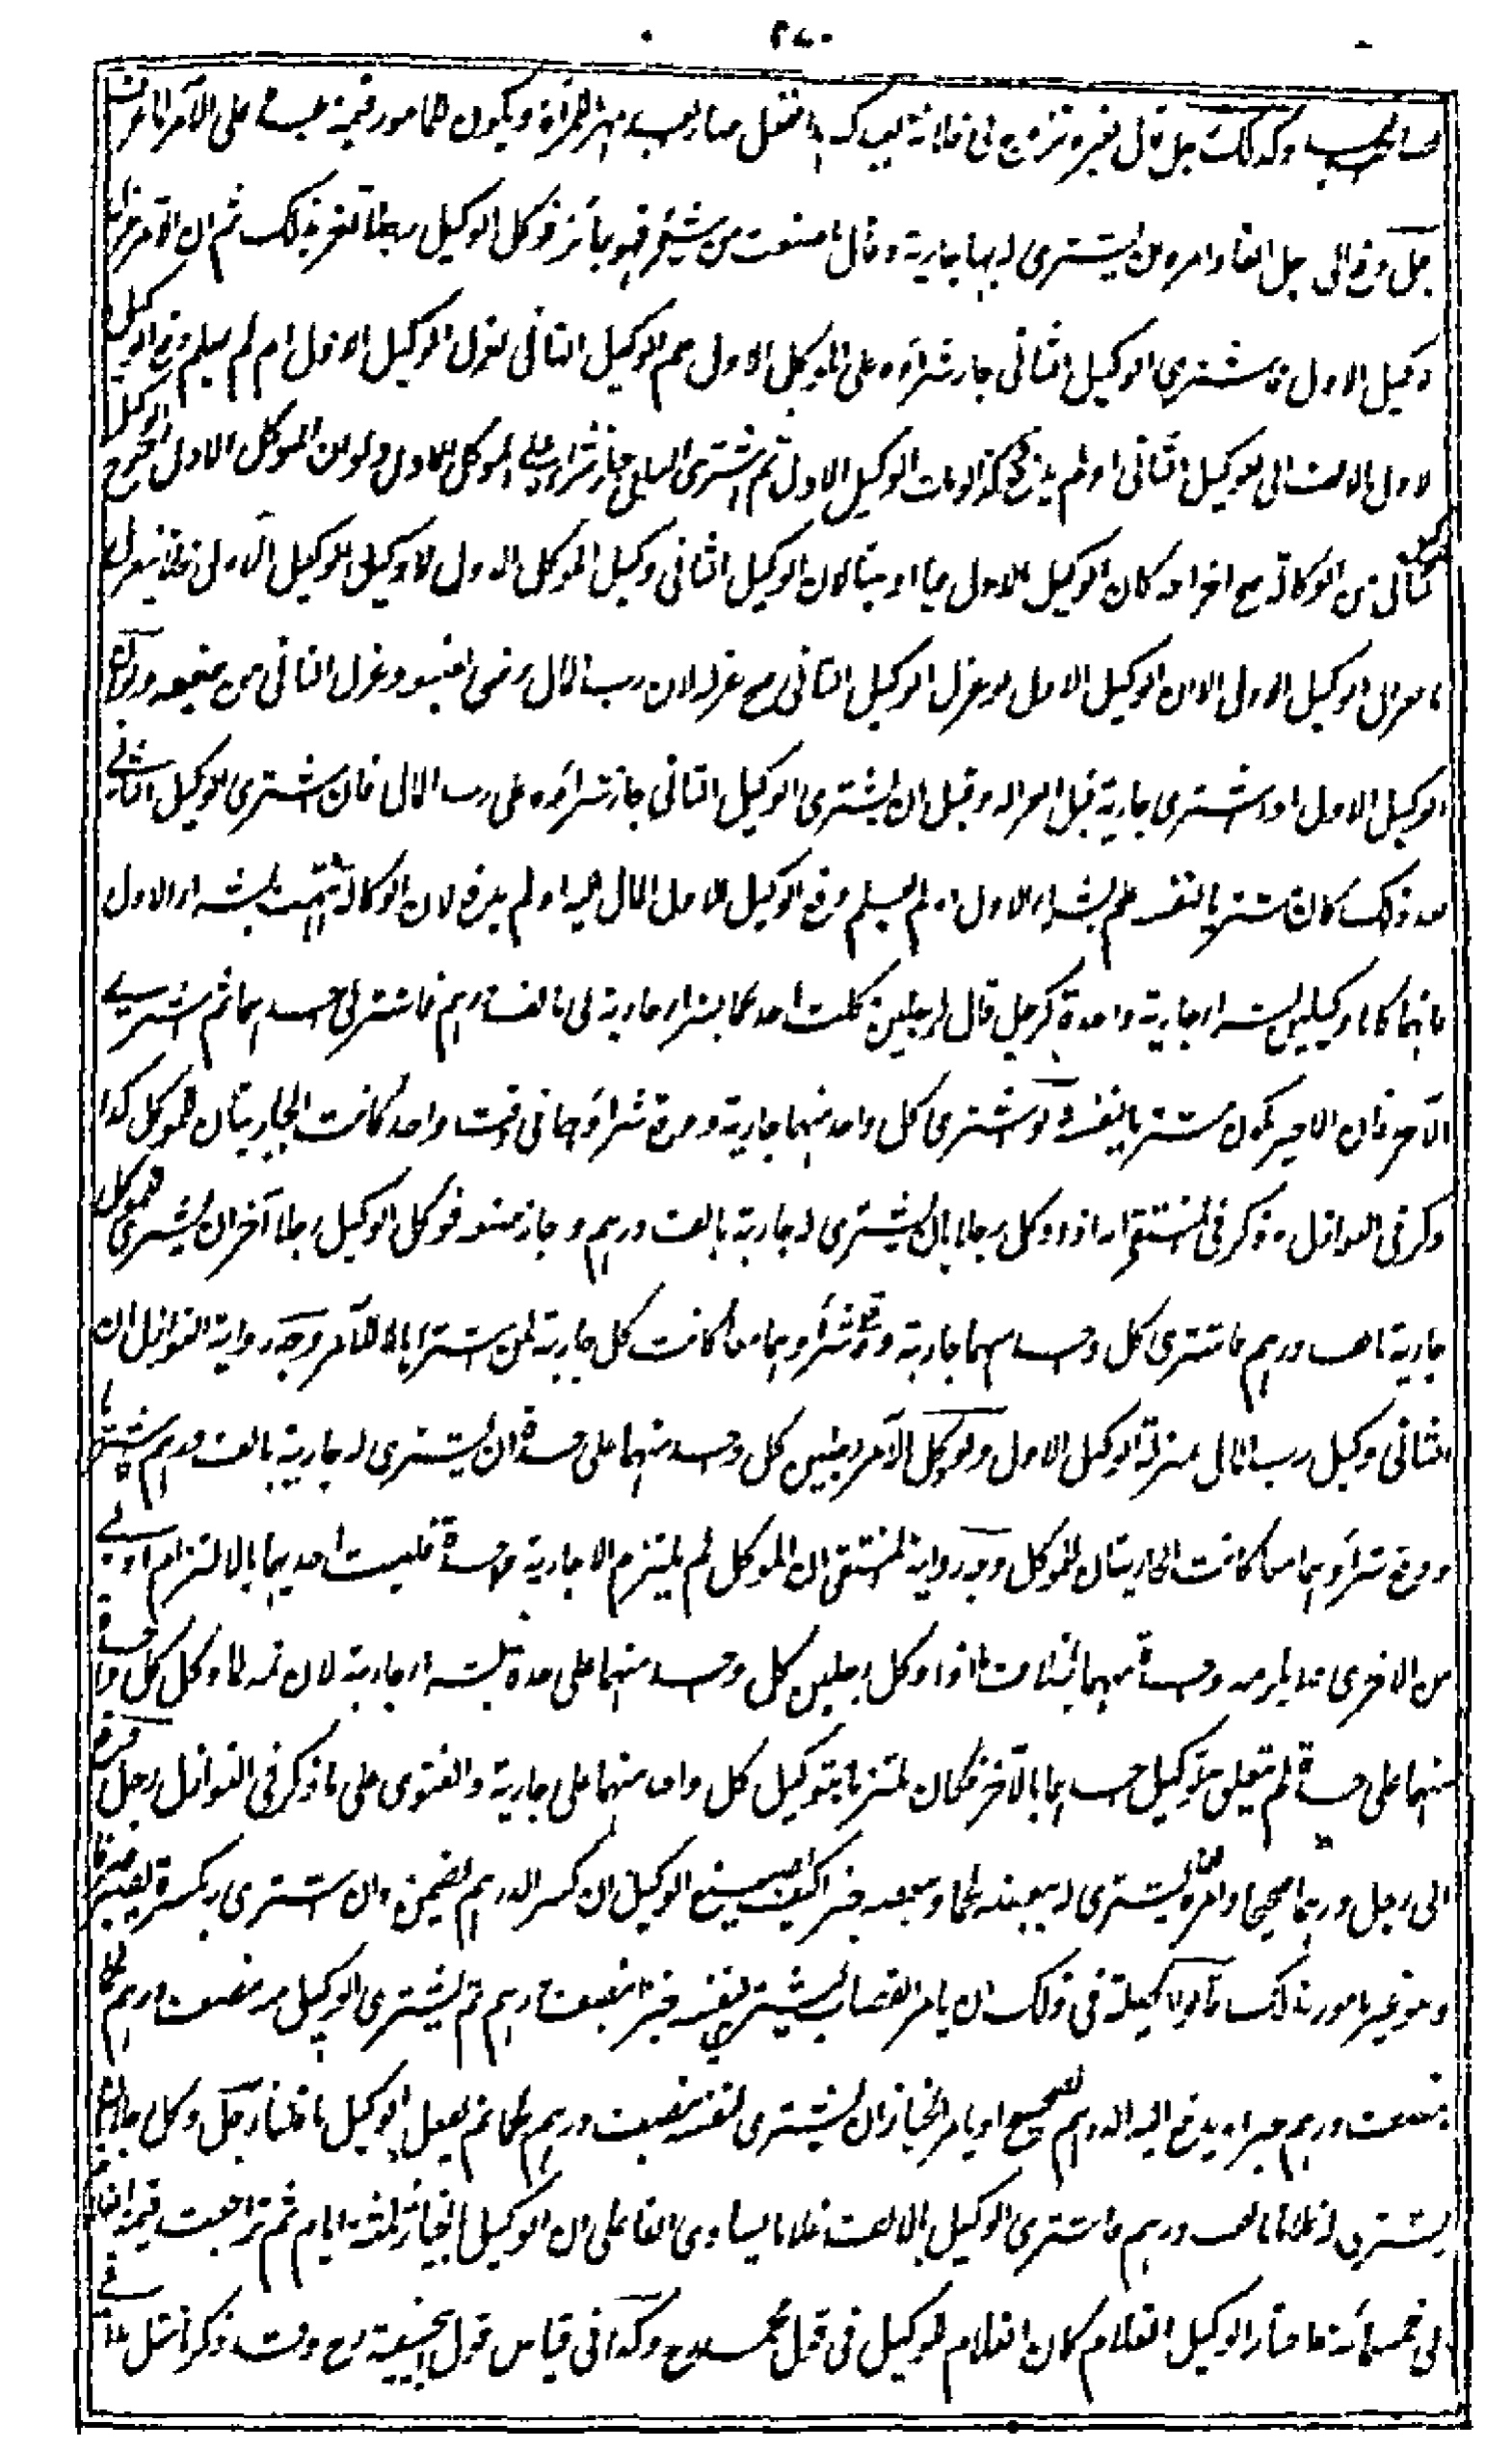 ٢٧٠
وكذلك رجل قال لغيره تزوج لي فلانة بعبدك هذا ففعل صار العبد مهر المرأة ويكون للمأمور قيمة عبده على الآمر
رجل دفع إلى رجل ألفا وأمره بأن يشتري له بها جارية وقال ما صنعت من شيء فهو جائز فوكل الوكيل رجلا آخر بذلك ثم ان الآمر
الوكيل الاول فاشترى الوكيل الثاني جاز شراؤه على الموكل الاول علم الوكيل الثاني بعزل الوكيل الاول ام لم يعلم دفع الوكيل
الاول الالف الى الوكيل الثاني او لم يدفع وكذا لو مات الوكيل الاول ثم اشترى الثاني جاز شراؤه على الموكل الاول ولو ان الموكل الاول اخرج الوكيل
الثاني من الوكالة صح اخراجه كان الوكيل الاول حيا او ميتا لان الوكيل الثاني وكيل الموكل الاول لا وكيل الوكيل الاول فلا ينعزل
الوكيل الاول الا ان الوكيل الاول لو عزل الوكيل الثاني صح عزله لان رب المال رضي بصنيعه وعزل الثاني من صنيعه ولو ان
الوكيل الاول اشترى جارية قبل العزل وقبل ان يشتري الوكيل الثاني جاز شراؤه على رب المال فان اشترى الوكيل الثاني
بعد ذلك كان مشتريا لنفسه علم بشراء الاول او لم يعلم دفع الوكيل الاول المال اليه او لم يدفع لان الوكالة انتهت بشراء الاول
فانهما كانا وكيلين بشراء جارية واحدة كرجل قال لرجلين وكلت احدكما بشراء جارية لي بالف درهم فاشترى احدهما ثم اشترى
الآخر فان الاخير يكون مشتريا لنفسه ولو اشترى كل واحد منهما جارية ووقع شراؤهما في وقت واحد كانت الجاريتان للموكل كذا
ذكر في النوازل وذكر في المنتقى اذا وكل رجلا بان يشتري له جارية بالف درهم وجاز صنعه فوكل الوكيل رجلا آخر ان يشتري للموكل
جارية بالف درهم فاشترى كل واحد منهما جارية ووقع شراؤهما معا كانت كل جارية لمن اشتراها لا للآمر وجه رواية النوازل ان
الثاني وكيل رب المال بمنزلة الوكيل الاول ولو وكل الآمر رجلين كل واحد منهما على حدة ان يشتري له جارية بالف درهم فاشتريا
ووقع شراؤهما معا كانت الجاريتان للموكل وجه رواية المنتقى ان الموكل لم يلتزم الا جارية واحدة فليست احديهما بالالتزام اولى
من الاخرى فلا يلزمه واحدة منهما بخلاف ما اذا وكل رجلين كل واحد منهما على حدة بشراء جارية لان ثمه لما وكل كل واحد
منهما على حدة لم يتعلق توكيل احدهما بالآخر فكان ملتزما بتوكيل كل واحد منهما على جارية والفتوى على ما ذكر في النوازل رجل دفع
الى رجل درهما صحيحا وامره ان يشتري له ببعضه لحما وببعضه خبزا كيف يصنع الوكيل ان كسر الدرهم يضمن وان اشترى بكسرة يصير
وهو غير مأمور بذلك قالوا الحيلة في ذلك ان يأمر القصاب ليشتري لنفسه خبزا بنصف درهم ثم يشتري الوكيل منه بنصف درهم لحما
وبنصف درهم خبزا ويدفع اليه الدرهم الصحيح او يأمر الخباز ان يشتري لنفسه بنصف درهم لحما ثم يفعل الوكيل ما قلنا رجل وكل رجلا بان
يشتري له غلاما بالف درهم فاشترى الوكيل بالالف غلاما يساوي الفا على ان الوكيل بالخيار ثلثة ايام ثم تراجعت قيمة الغلام
الى خمسمائة فاختار الوكيل الغلام كان الغلام للوكيل في قول محمد رح وكذا في قياس قول ابي حنيفة رح وقت وذكر